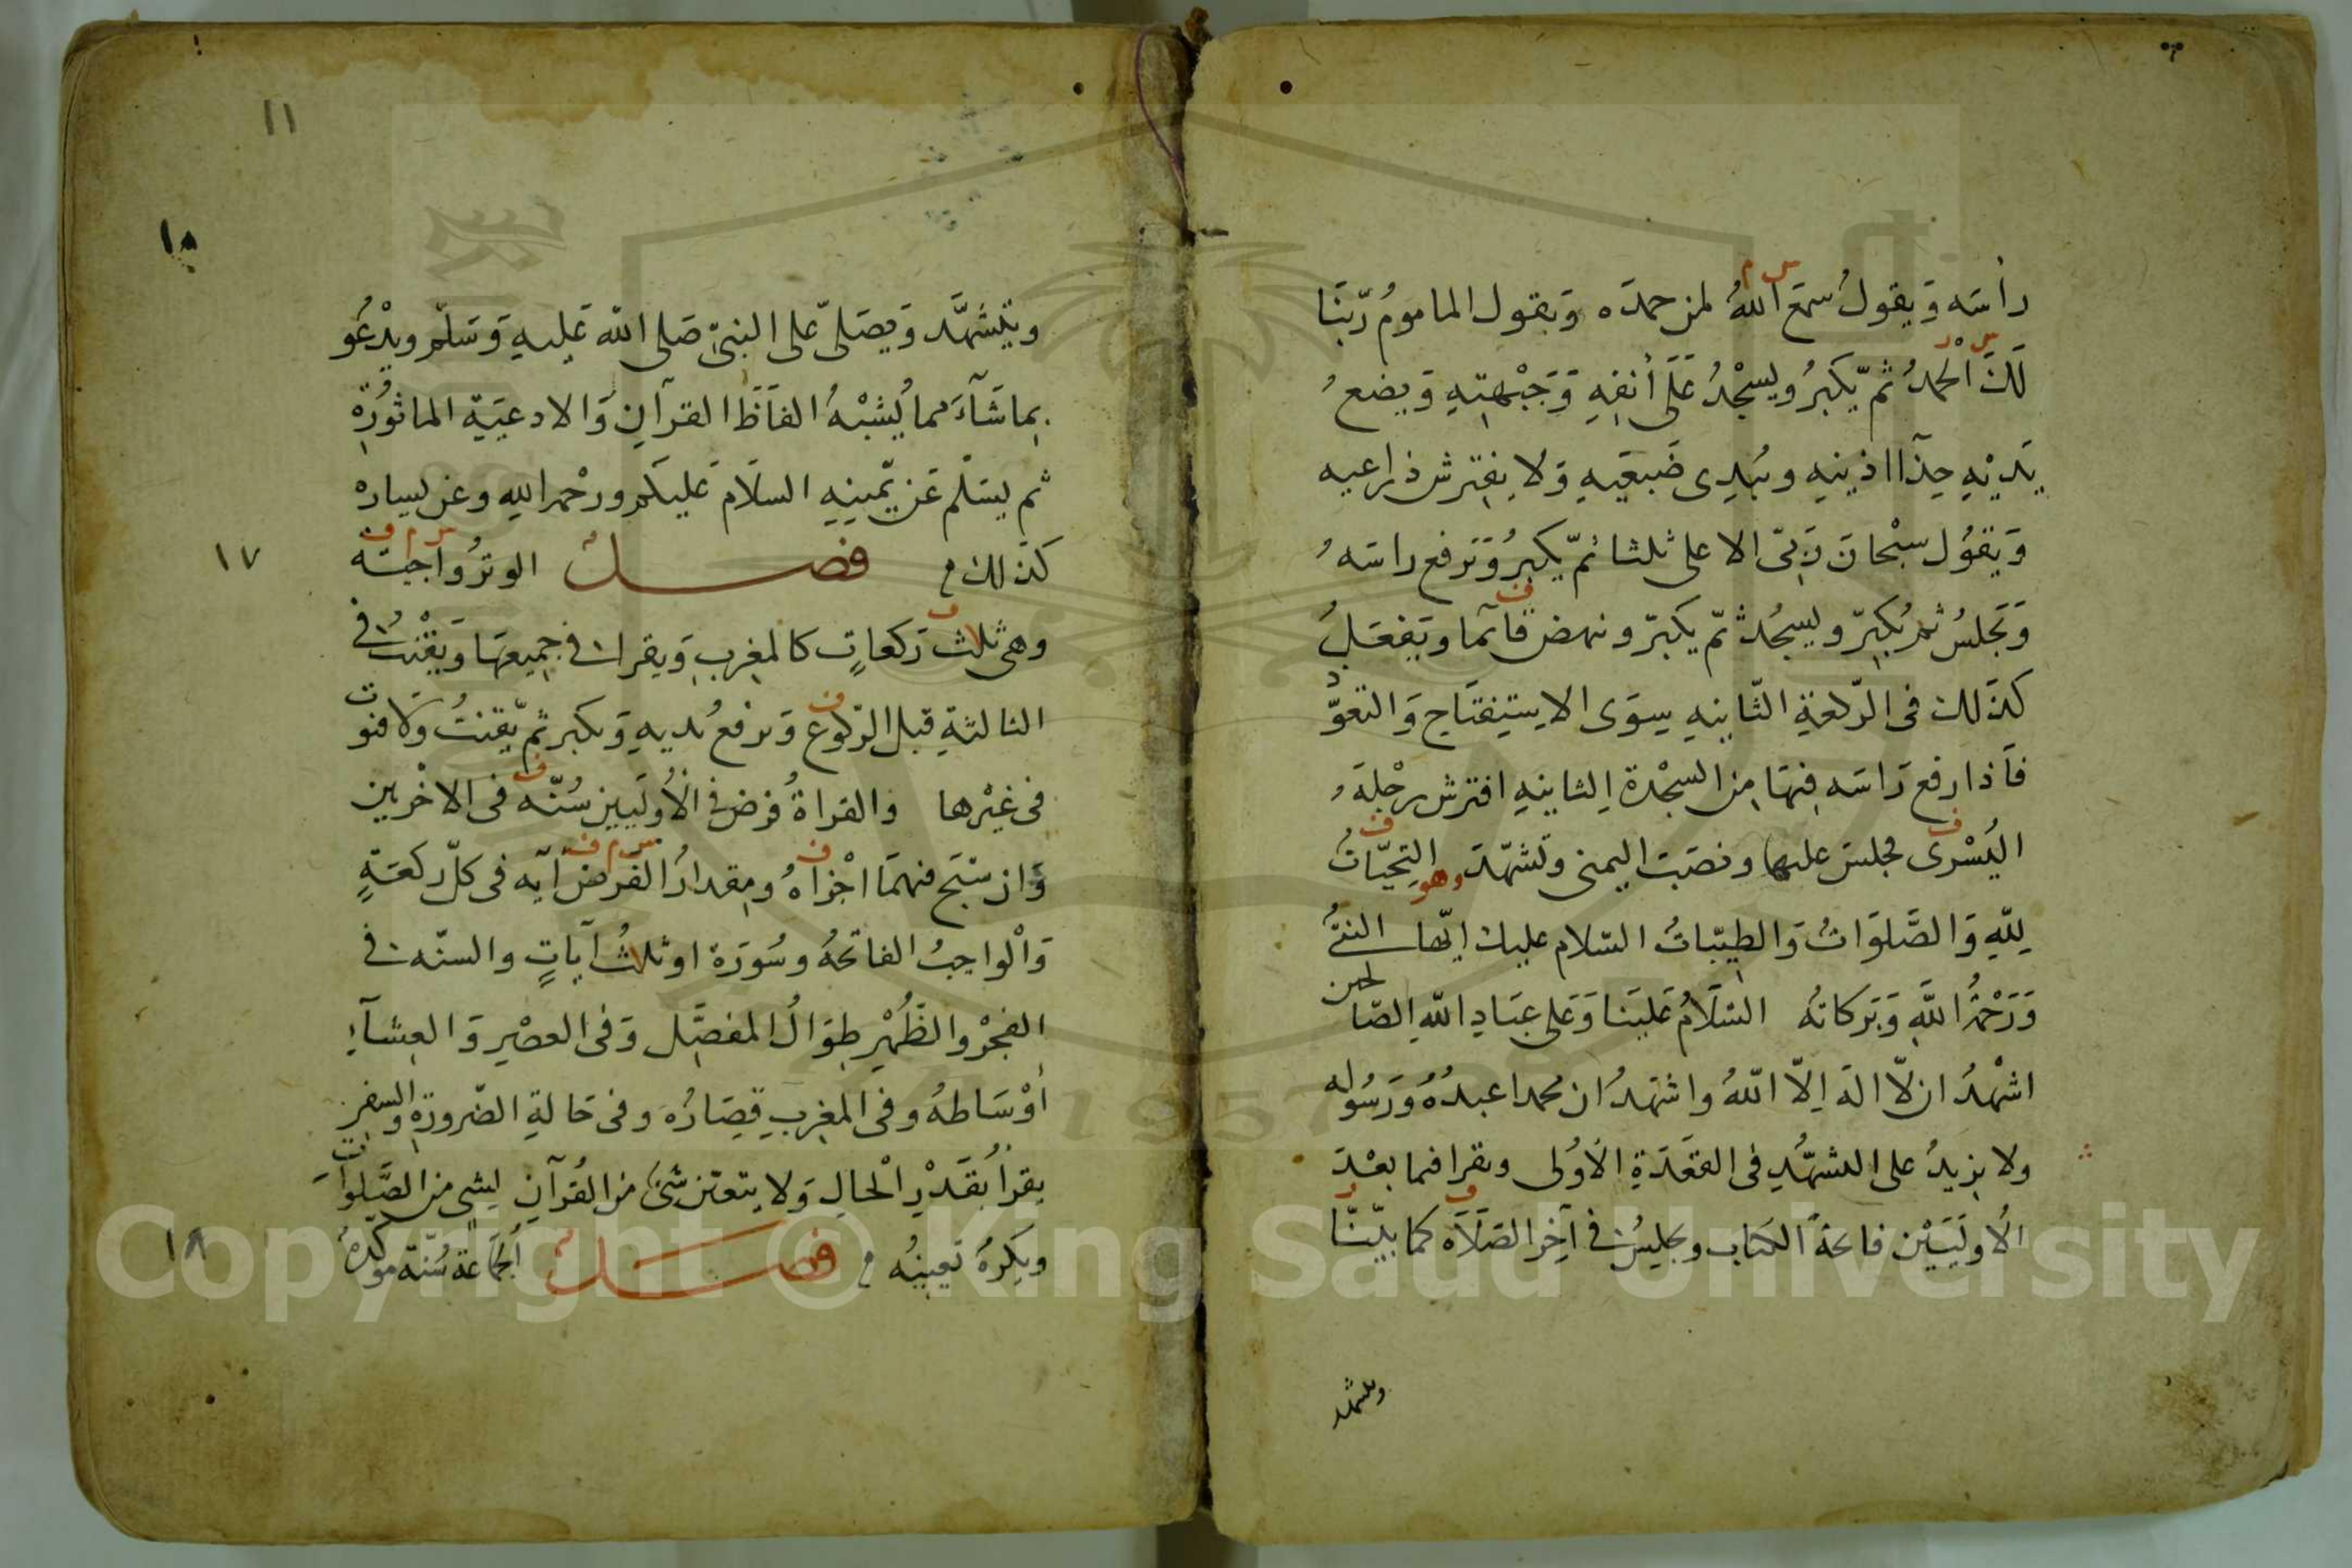 رأسه ويقول سمع الله لمن حمده ويقول الماموم ربنا
لك الحمد ثم يكبر ويسجد على أنفه وجبهته ويضع
يديه حذا اذنيه ويبدى ضبعيه ولا يفترش ذراعيه
ويقول سبحان ربى الاعلى ثلثا ثم يكبر ويرفع راسه
ويجلس ثم يكبر ويسجد ثم يكبر وينهض قائما ويفعل
كذلك فى الركعة الثانيه سوى الاستفتاح والتعوذ
فاذا رفع راسه فيها من السجدة الثانيه افترش رجله
اليسرى فجلس عليها ونصب اليمنى وتشهد وهو التحيات
لله والصلوات والطيبات السلام عليك ايها النبى
ورحمة الله وبركاته السلام علينا وعلى عباد الله الصالحين
اشهد ان لا اله الا الله واشهد ان محمدا عبده ورسوله
ولا يزيد على التشهد فى القعدة الاولى ويقرا فيما بعد
الاوليين فاتحة الكتاب ويجلس فى آخر الصلاة كما بينا
ويتشهد
١١
١٥
ويتشهد ويصلى على النبى صلى الله عليه وسلم ويدعو
بما شآء مما يشبه الفاظ القرآن والادعية الماثورة
ثم يسلم عن يمينه السلام عليكم ورحمة الله وعن يساره
كذلك فصل الوتر واجبة
١٧
وهى ثلث ركعات كالمغرب ويقرا فى جميعها ويقنت فى
الثالثة قبل الركوع ويرفع يديه ويكبر ثم يقنت ولا قنوت
فى غيرها والقراة فرض فى الأوليين سنه فى الاخريين
وان سبح فيهما اجزاه ومقدار الفرض آيه فى كل ركعة
والواجب الفاتحه وسورة او ثلث آيات والسنه فى
الفجر والظهر طوال المفصل وفى العصر والعشآء
أوساطه وفى المغرب قصاره وفى حالة الضرورة والسفر
يقرأ بقدر الحال ولا يتعين شئ من القرآن لشى من الصلوات
ويكره تعيينه فصل الجماعة سنة موكدة
١٨
Copyright © King Saud University
1957